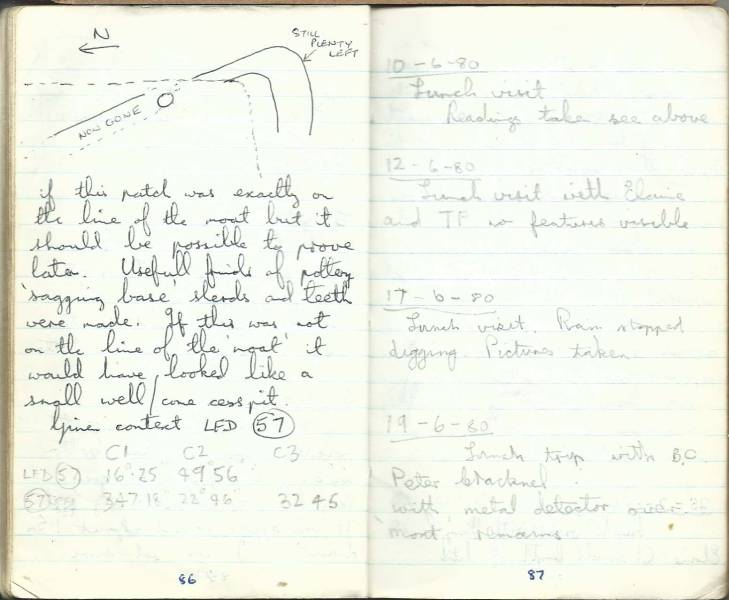 N
STILL
PLENTY
LEFT
NOW GONE
if this patch was exactly on
the line of the moat but it
should be possible to prove
later. Usefull finds of pottery
'sagging base' sherds and teeth
were made. If this was not
on the line of the 'moat' it
would have looked like a
small well/cone cesspit.
Given context LFD 57
C1 C2 C3
LFD 57 16°.25 49°56
57 347.18 22°46 32 45
86
10-6-80
Lunch visit
Readings taken see above
12-6-80
Lunch visit with Elaine
and TF no features visible
17-6-80
Lunch visit. Rain stopped
digging. Pictures taken
19-6-80
Lunch trip with B.C.
Peter
with metal detector
'moat' remains
87